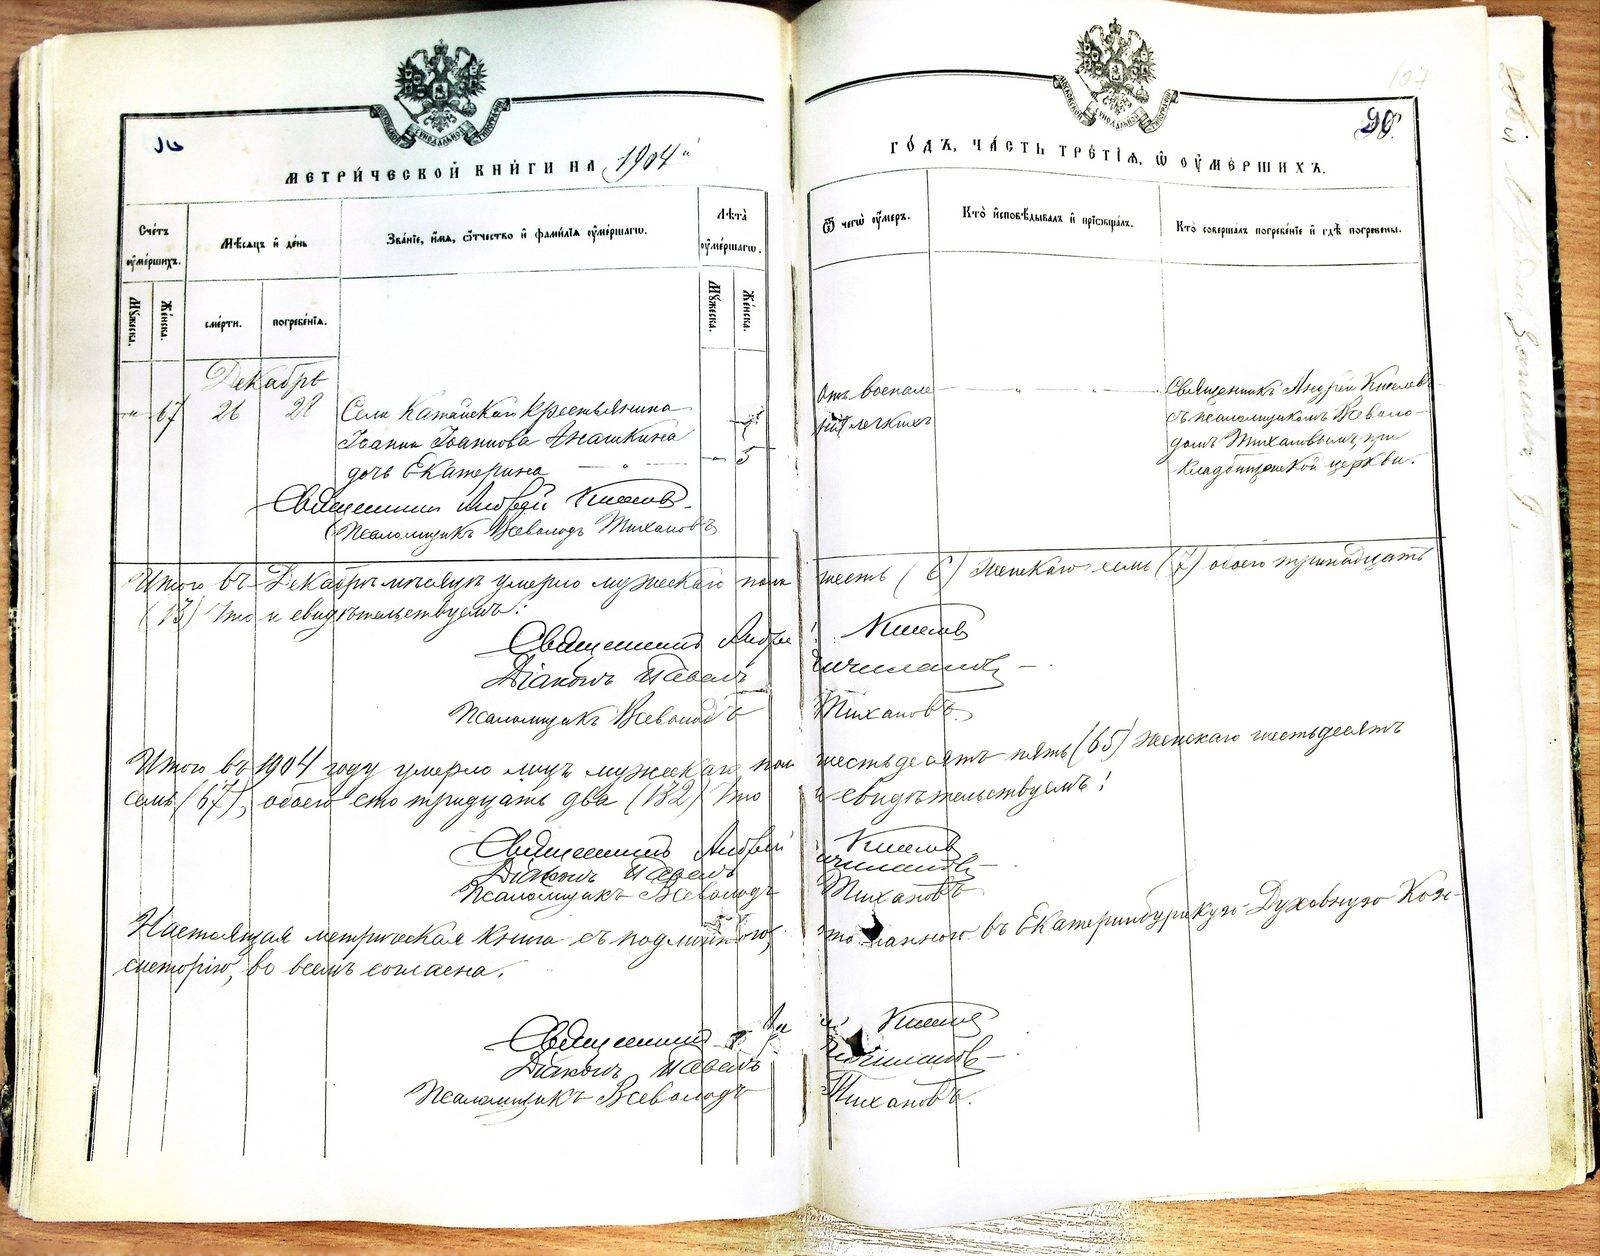 МЕТРИ́ЧЕСКОЙ КНИ́ГИ НА 1904й
ГО́ДЪ, ЧА́СТЬ ТРЕ́ТІѦ, Ѿ ОУ҆МЕ́РШИХЪ.
Сче́тъ оу҆ме́ршихъ.
Мѣ́сѧцъ и҆ де́нь
Зва́нїе, и҆́мѧ, ѻ҆́тчество и҆ фами́лїѧ оу҆ме́ршагѡ.
Лѣ́та̀ оу҆ме́ршагѡ.
Ѿ чегѡ̀ оу҆́меръ.
Кто̀ и҆сповѣ́дывалъ и҆ прїѡбща́лъ.
Кто̀ соверша́лъ погребе́нїе и҆ гдѣ̀ погребены̀.
Мꙋ́жеска.
Же́нска.
сме́рти.
погребе́нїѧ.
Мꙋ́жеска.
Же́нска.
Декабрь
67 26 28 Села Катайскаго крестьянина
Іоанна Іоаннова Анашкина
дочь Екатерина — " — 5
Священникъ Андрей Киселевъ.
Псаломщикъ Всеволодъ Тихановъ
Отъ воспале-
нія легкихъ
Священникъ Андрей Киселевъ
съ псаломщикомъ Всеволо-
домъ Тихановымъ, при
кладбищенской церкви.
Итого въ Декабрѣ мѣсяцѣ умерло мужескаго пола шесть (6) женскаго семь (7) обоего тринадцать
(13) Что и свидѣтельствуемъ:
Священникъ Андрей Киселевъ
Діаконъ Павелъ
Псаломщикъ Всеволодъ Тихановъ.
Итого въ 1904 году умерло лицъ мужескаго пола шестьдесятъ пять (65) женскаго шестьдесятъ
семь (67), обоего сто тридцать два (132) Что и свидѣтельствуемъ:
Священникъ Андрей Киселевъ
Діаконъ Павелъ
Псаломщикъ Всеволодъ Тихановъ
Настоящая метрическая книга съ подлинною, въ Екатеринбургскую Духовную Кон-
систорію, во всемъ согласна.
Священникъ Киселевъ
Діаконъ Павелъ
Псаломщикъ Всеволодъ Тихановъ.